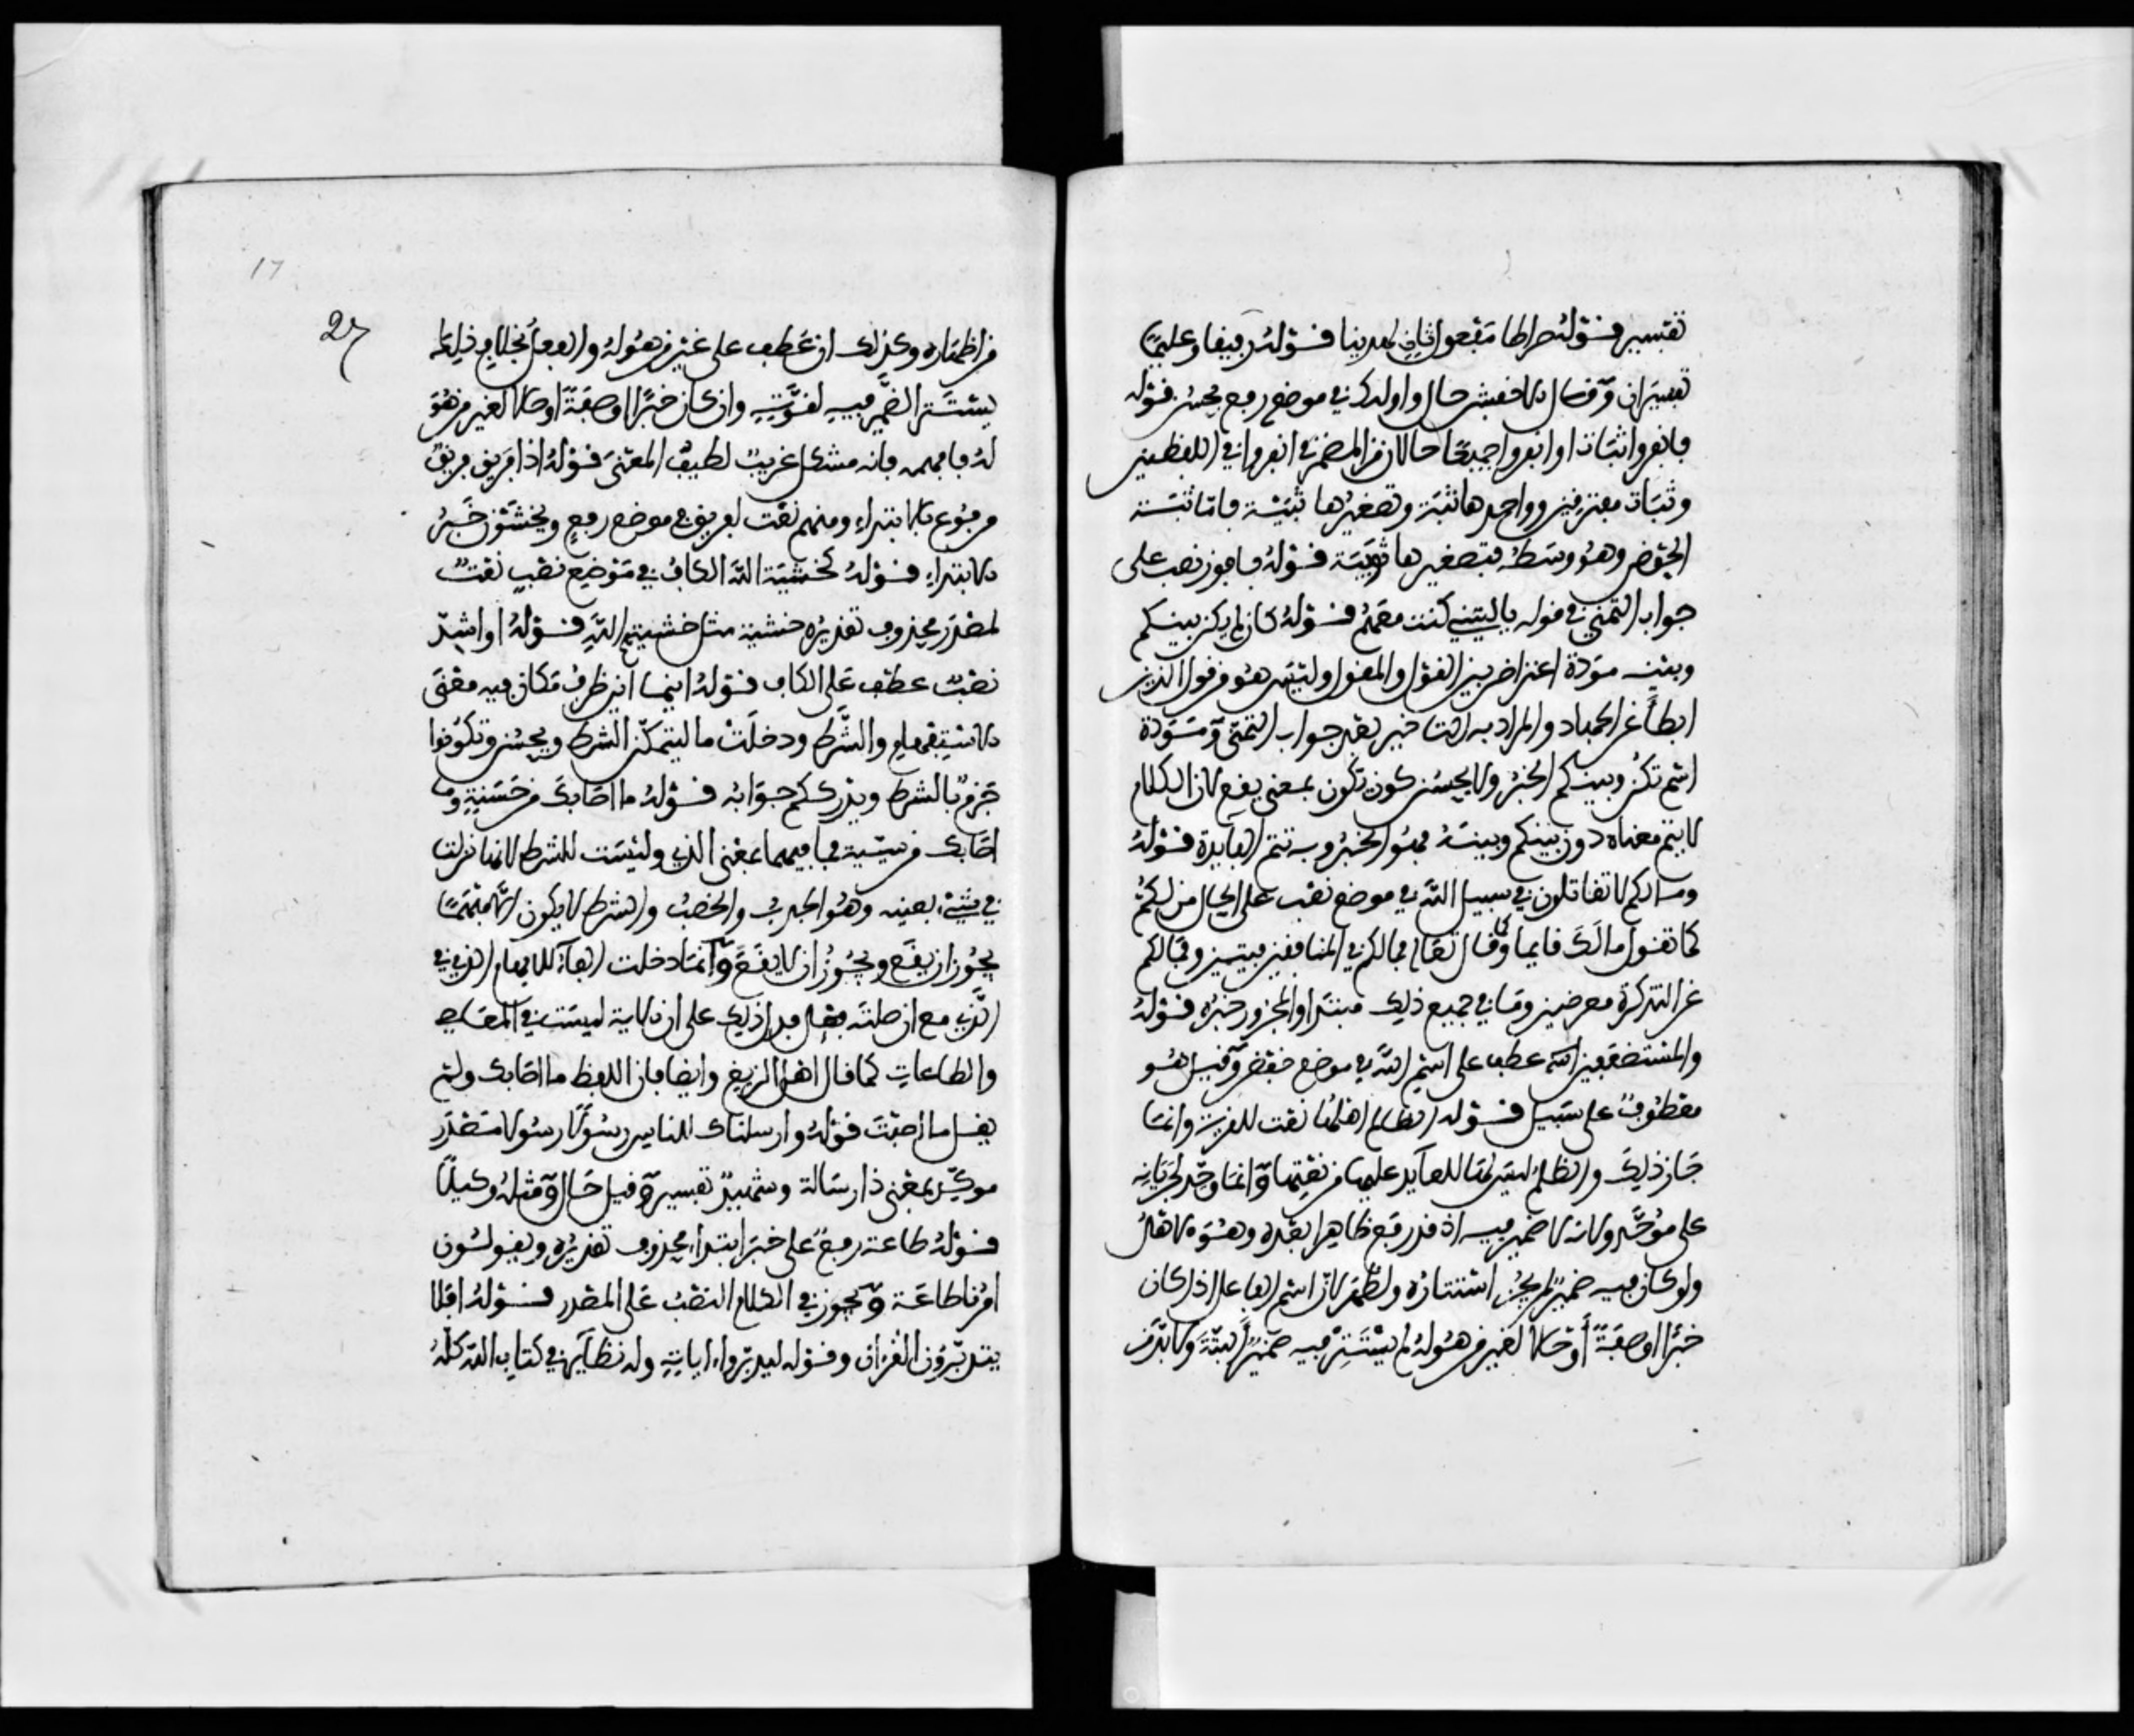 تفسير قوله صراطا مفعول ثان لهدينا قوله رفيقا وعليما
تفسيران وقال الاخفش حال واولئك في موضع رفع بحسن قوله
فانفروا ثبات او انفروا جميعا حالان من المضمر في انفروا في اللفظين
وثبات مفترقين وواحدها ثبة وتصغيرها ثبية فاما ثبة
الحوض وهو وسطه فتصغيرها ثويبة قوله فافوز نصب على
جواب التمني في قوله ياليتني كنت معهم قوله كان لم يكن بينكم
وبينه مودة اعتراض بين القول والمقول وليس هو من قول الذين
ابطأ عن الجهاد والمراد به التاخير بعد جواب التمني ومودة
اسم تكن وبينكم الخبر ولا يحسن كون تكون بمعنى يقع لان الكلام
لا يتم معناه دون بينكم وبينه فهو الخبر وبه تتم الفايدة قوله
ومالكم لا تقاتلون في سبيل الله في موضع نصب على الحال من لكم
كما تقول مالك قايما وكما قال تعالى فمالكم في المنافقين فيتين وفمالهم
عن التذكرة معرضين وما في جميع ذلك مبتدا والمجرور خبره قوله
والمستضعفين الله عطف على اسم الله في موضع خفض وقيل هو
معطوف على سبيل قوله الظالم اهلها نعت للقرية وانما
جاز ذلك والظلم ليس لها للعايد عليها من نعتها وانما وحد لجريانه
على موحد ولانه لا ضمير فيه اذ قد رفع ظاهرا بعده وهو الاهل
ولو كان فيه ضمير لم يجز استتاره ولظهر لان اسم الفاعل اذا كان
خبرا او صفة او حالا لغير من هو له لم يستتر فيه ضمير البتة ولابد
من اظهاره وكذلك ان عطف على غير من هو له والفعل بخلاف ذلك
يستتر الضمير فيه لقوته وان كان خبرا او صفة او حالا لغير من هو
له فافهمه فانه مشكل غريب لطيف المعنى قوله اذا فريق فريق
مرفوع بالابتداء ومنهم نعت لفريق في موضع رفع ويخشون خبر
الابتداء قوله كخشية الله الكاف في موضع نصب نعت
لمصدر محذوف تقديره خشية مثل خشيتهم الله قوله او اشد
نصب عطف على الكاف قوله اينما اين ظرف مكان فيه معنى
الاستفهام والشرط ودخلت ما ليتمكن الشرط ويحسن وتكونوا
جزم بالشرط ويدرككم جوابه قوله ما اصابك من حسنة وما
اصابك من سيية فما فيهما بمعنى الذي وليست للشرط لانها نزلت
في شيء بعينه وهو الجدب والخصب والشرط لا يكون الا مبهما
يجوز ان يقع ويجوز ان لا يقع وانما دخلت الفاء للابهام الذي في
الذي مع ان صلته فعل فدل ذلك على ان الاية ليست في المعاصي
والطاعات كما قال اهل الزيغ وايضا فان اللفظ ما اصابك ولم
يقل ما اصبت قوله وارسلناك للناس رسولا رسولا مصدر
موكد بمعنى ذا رسالة وشهيدا تفسير وقيل حال ومثله وكيلا
قوله طاعة رفع على خبر ابتداء محذوف تقديره ويقولون
امرنا طاعة ويجوز في الكلام النصب على المصدر قوله افلا
يتدبرون القرءان وقوله ليدبروا ءاياته وله نظاير في كتاب الله كله
27
17